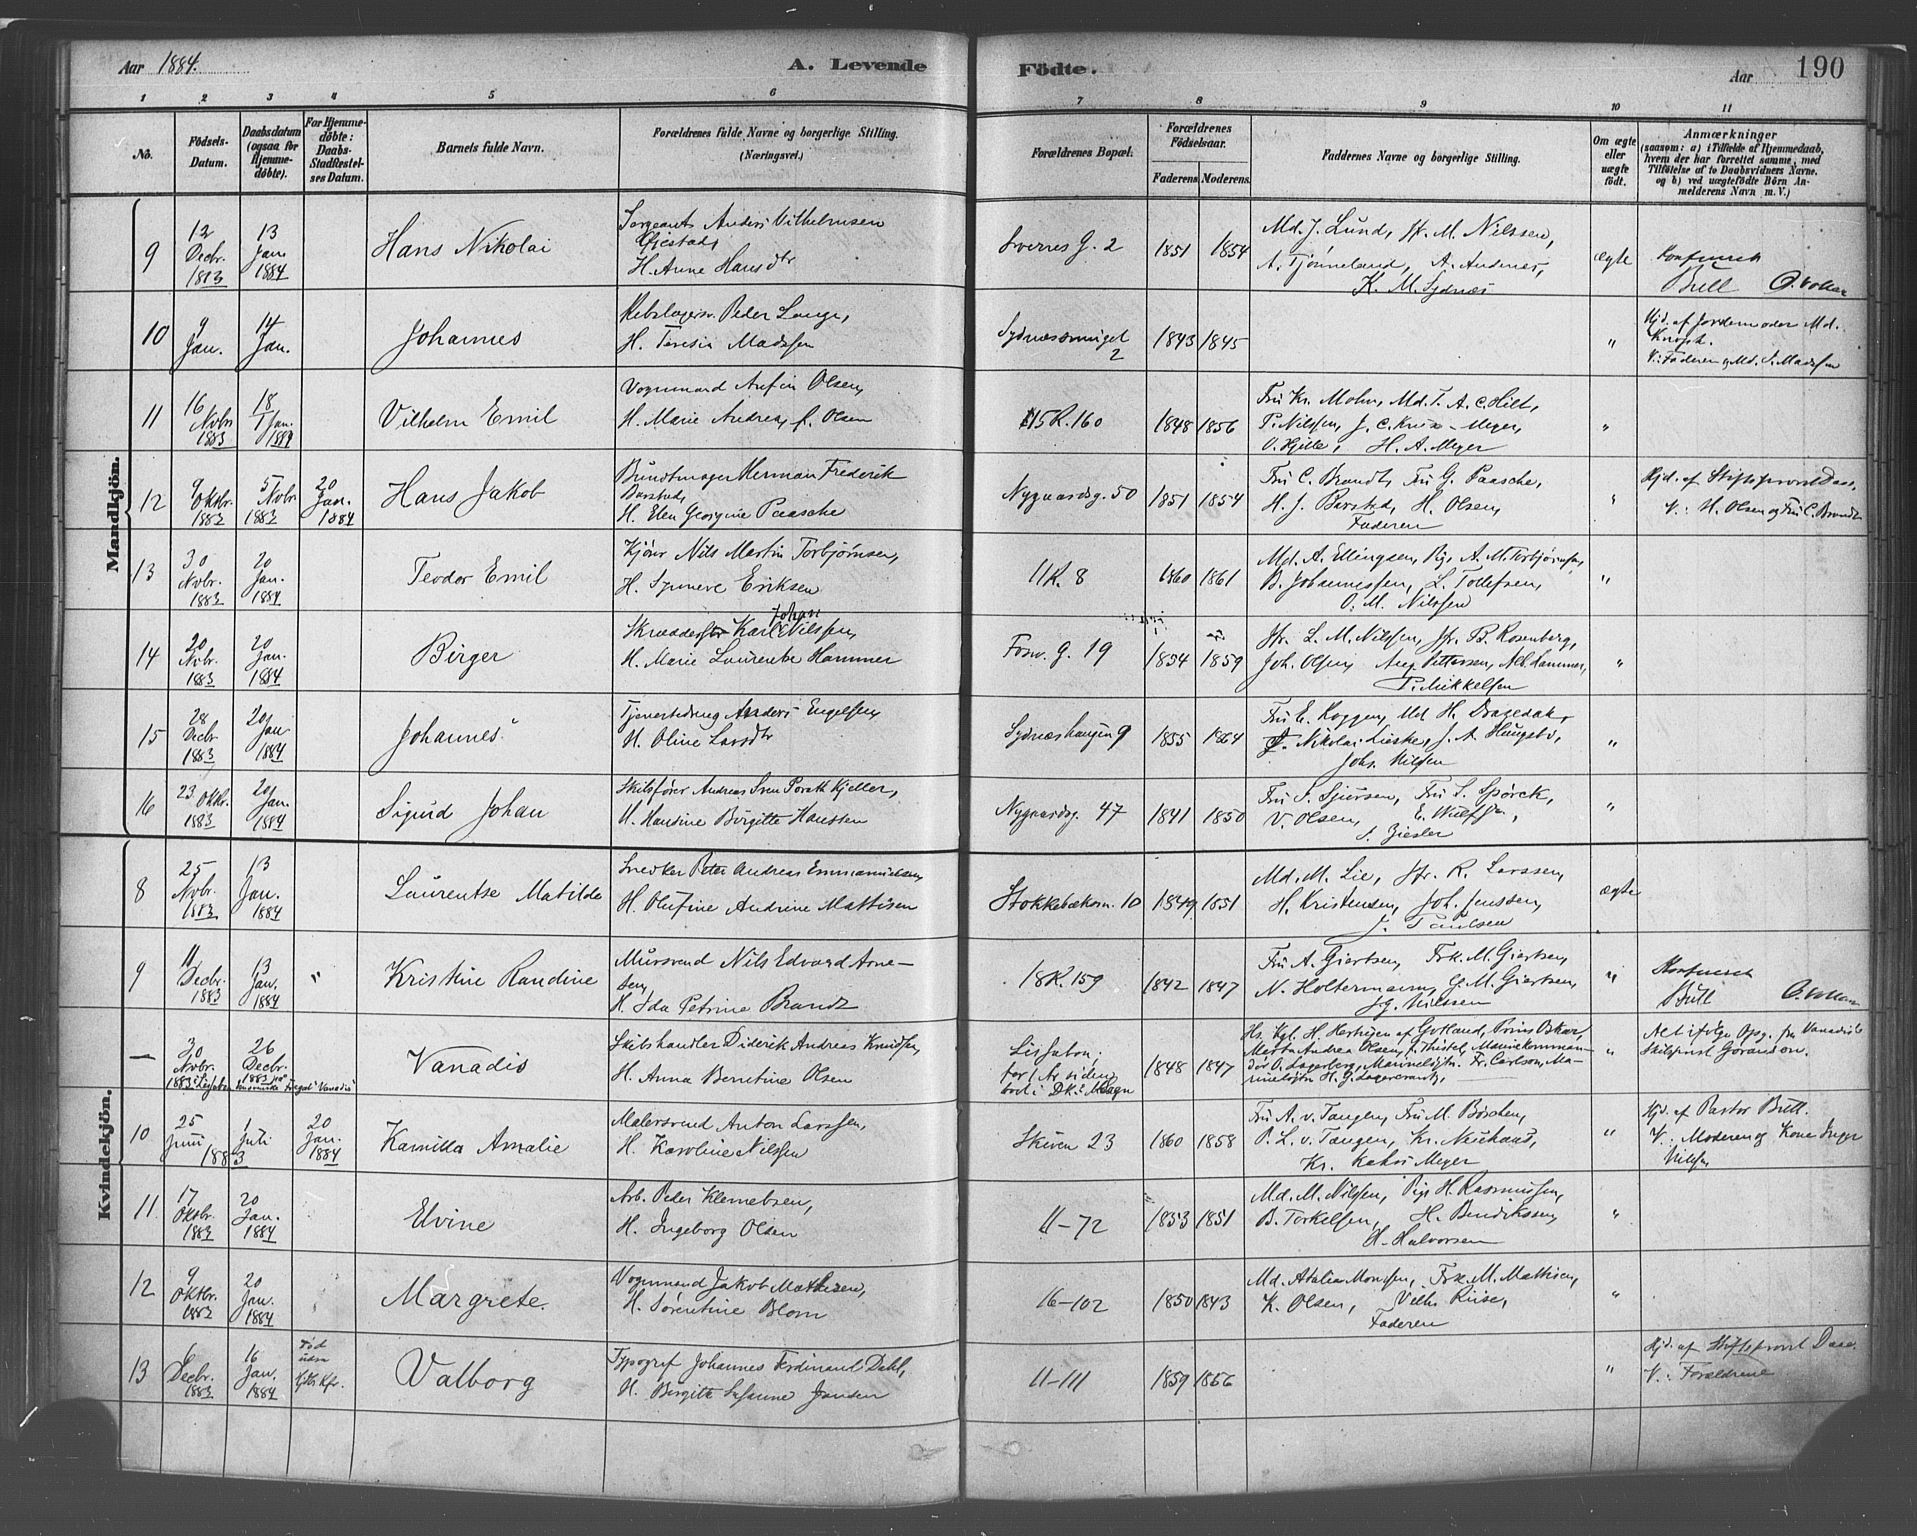 Aar 1884. A. Levende Födte. Aar 190
1 2 3 4 5 6 7 8 9 10 11
No.
Födsels-Datum.
Daabsdatum (ogsaa för Hjemme-döbte).
For Hjemme-döbte: Daabs-Stadfæstel-ses Datum.
Barnets fulde Navn.
Forældrenes fulde Navne og borgerlige Stilling. (Næringsvei.)
Forældrenes Bopæl.
Forældrenes Födselsaar.
Faderens. Moderens.
Faddernes Navne og borgerlige Stilling.
Om ægte eller uægte födt.
Anmærkninger
(saasom: a) i Tilfælde af Hjemmedaab, hvem der har forrettet samme, med Tilföielse af to Daabsvidners Navne, og b) ved uægtefödte Börn An-melderens Navn m. V.)
Mandkjön.
9 12 Decbr. 1883 13 Jan. 1884 Hans Nikolai
Sergeant Anders Vilhelmsen
H. Anne Hansdtr
G. 2 1851 1854
Md. J. Lund, Jfr. M. Nilssen,
A. Tjønneland, A. Andersen,
K. M. Sydnæs
ægte
10 9 Jan. 14 Jan. Johannes
Peder Lange,
H. Teresia Madssen
Sydnæssmuget 2 1843 1845 "
Hjd. af Jordemoder Md.
V.: Faderen og Md. S. Madssen
11 16 Novbr 1883 18 Jan. 1884 Vilhelm Emil
Vognmand Anfin Olsen,
H. Marie Andrea, f. Olsen
15 R. 160 1848 1856
Fru Kr. Mohn, Md. T. A. C. Hilt,
P. Nilssen, J. C. Meyer,
O. Hjelle, H. A. Meyer
"
12 9 Oktbr. 1883 5 Novbr. 1883 20 Jan. 1884 Hans Jakob
Bundtmager Herman Frederik
Barstad,
H. Elen Georgine Paasche
Nygaardsg. 50 1851 1854
Fru C. Brandt, Fru G. Paasche,
H. J. Barstad, H. Olsen,
Faderen
"
Hjd. af Stiftsprovst Daae.
V.: H. Olsen og Fru C. Brandt
13 30 Novbr. 1883 20 Jan. 1884 Teodor Emil
Kjører Nils Martin Torbjørnsen,
H. Synneve Eriksen
11 R. 8 1860 1861
Md. A. Ellingsen, Pige A. M. Torbjørnsen,
B. Johannessen, L. Tollefsen,
O. M. Nilssen
"
14 20 Novbr. 1883 20 Jan. 1884 Birger
Johan
Skrædder Karl Nilssen,
H. Marie Laurentse Hammer
Fosw. G. 19 1854 1859
Jfr. L. M. Nilssen, Jfr. B. Rosenberg,
Joh. Olsen, Aug. Pettersen, Alb. Hammer,
P. Mikkelsen
"
15 28 Decbr 1883 20 Jan 1884 Johannes
Anders Engelsen,
H. Oline Larsdtr
Sydneshaugen 9 1855 1864
Fru E. Koggen, Md H. Dragedal,
Nikolai Lieske, J. A. Haugsbø,
Johs. Nilsen
"
16 23 Oktbr. 1883 20 Jan. 1884 Sigurd Johan
Skibsfører Andreas Sven Poratt Kjeller,
H. Handine Birgitte Hanssen
Nygaardsg. 47 1841 1850
Fru S. Sjursen, Fru S. Spørck,
V. Olsen, E. Wulfsen,
S. Giesler
"
Kvindekjön.
8 25 Novbr. 1883 13 Jan. 1884 Laurentse Matilde
Snedker Peter Andreas Emmanuelsen,
H. Olufine Andrine Mattisen
Stokkebækom. 10 1849 1851
Md. M. Lie, Jfr. R. Larssen,
H. Kristensen, Joh. Jenssen,
J. Paulsen
ægte
9 11 Decbr. 1883 13 Jan. 1884 " Kristine Randine
Mursvend Nils Edvard Arne-
sen,
H. Ida Petrine Brandt
18 R. 159 1842 1847
Fru A. Giertsen, Frk. M. Giertsen,
N. Holtermann, G. M. Giertsen,
Nilssen
"
— 30 Novbr. 1883 26 Decbr. 1883 Vanadis
Skibshandler Diderik Andreas Knudsen,
H. Anna Berntine Olsen
Lissabon. 1848 1847
Hs. Kgl. H. Hertugen af Gotland, Prins Oskar,
Marta Andrea Olsen, f. Thistel, Marinekomman-
dør O. Lagerberg, Marineløjtn. Fr. Carlson, Ma-
rineløjtn H. G. Lagercrantz,
"
Alt ifølge Opg. fra Vanadis's
Skibsprest Goranson.
10 25 Juni 1 Juli 1883 20 Jan. 1884 Kamilla Amalie
Malersvend Anton Larssen,
H. Karoline Nilssen
Skiven 23 1860 1858
Fru A. v. Tangen, Fru M. Børchen,
P. L. v. Tangen, Kr. Neuhaus,
Kr. Meyer
"
Hjd. af Pastor Bull.
V.: Moderen og Kone Inger
Nilssen
11 17 Oktbr. 1883 20 Jan. 1884 Elvine
Arb. Peder Klemetsen,
H. Ingeborg Olsen
11–72 1853 1851
Md. M. Nilsen, Pige H. Rasmussen,
B. Torkelsen, H. Bendikssen,
H. Halvorsen
"
12 9 Oktbr. 1883 20 Jan. 1884 Margrete.
Vognmand Jakob Mathisen,
H. Sørentine Blom
16–102 1850 1843
Md. Atalia Monssen, Frk. M. Mathisen,
K. Olsen, Vilh. Riise,
Faderen
"
13 6 Decbr. 1883 16 Jan. 1884 Død uden Valborg
Typograf Johannes Ferdinand Dahl,
H. Birgitte Susanne Jansen
11–111 1859 1856 "
Hjd. af Stiftsprovst Daae.
V.: Forældrene